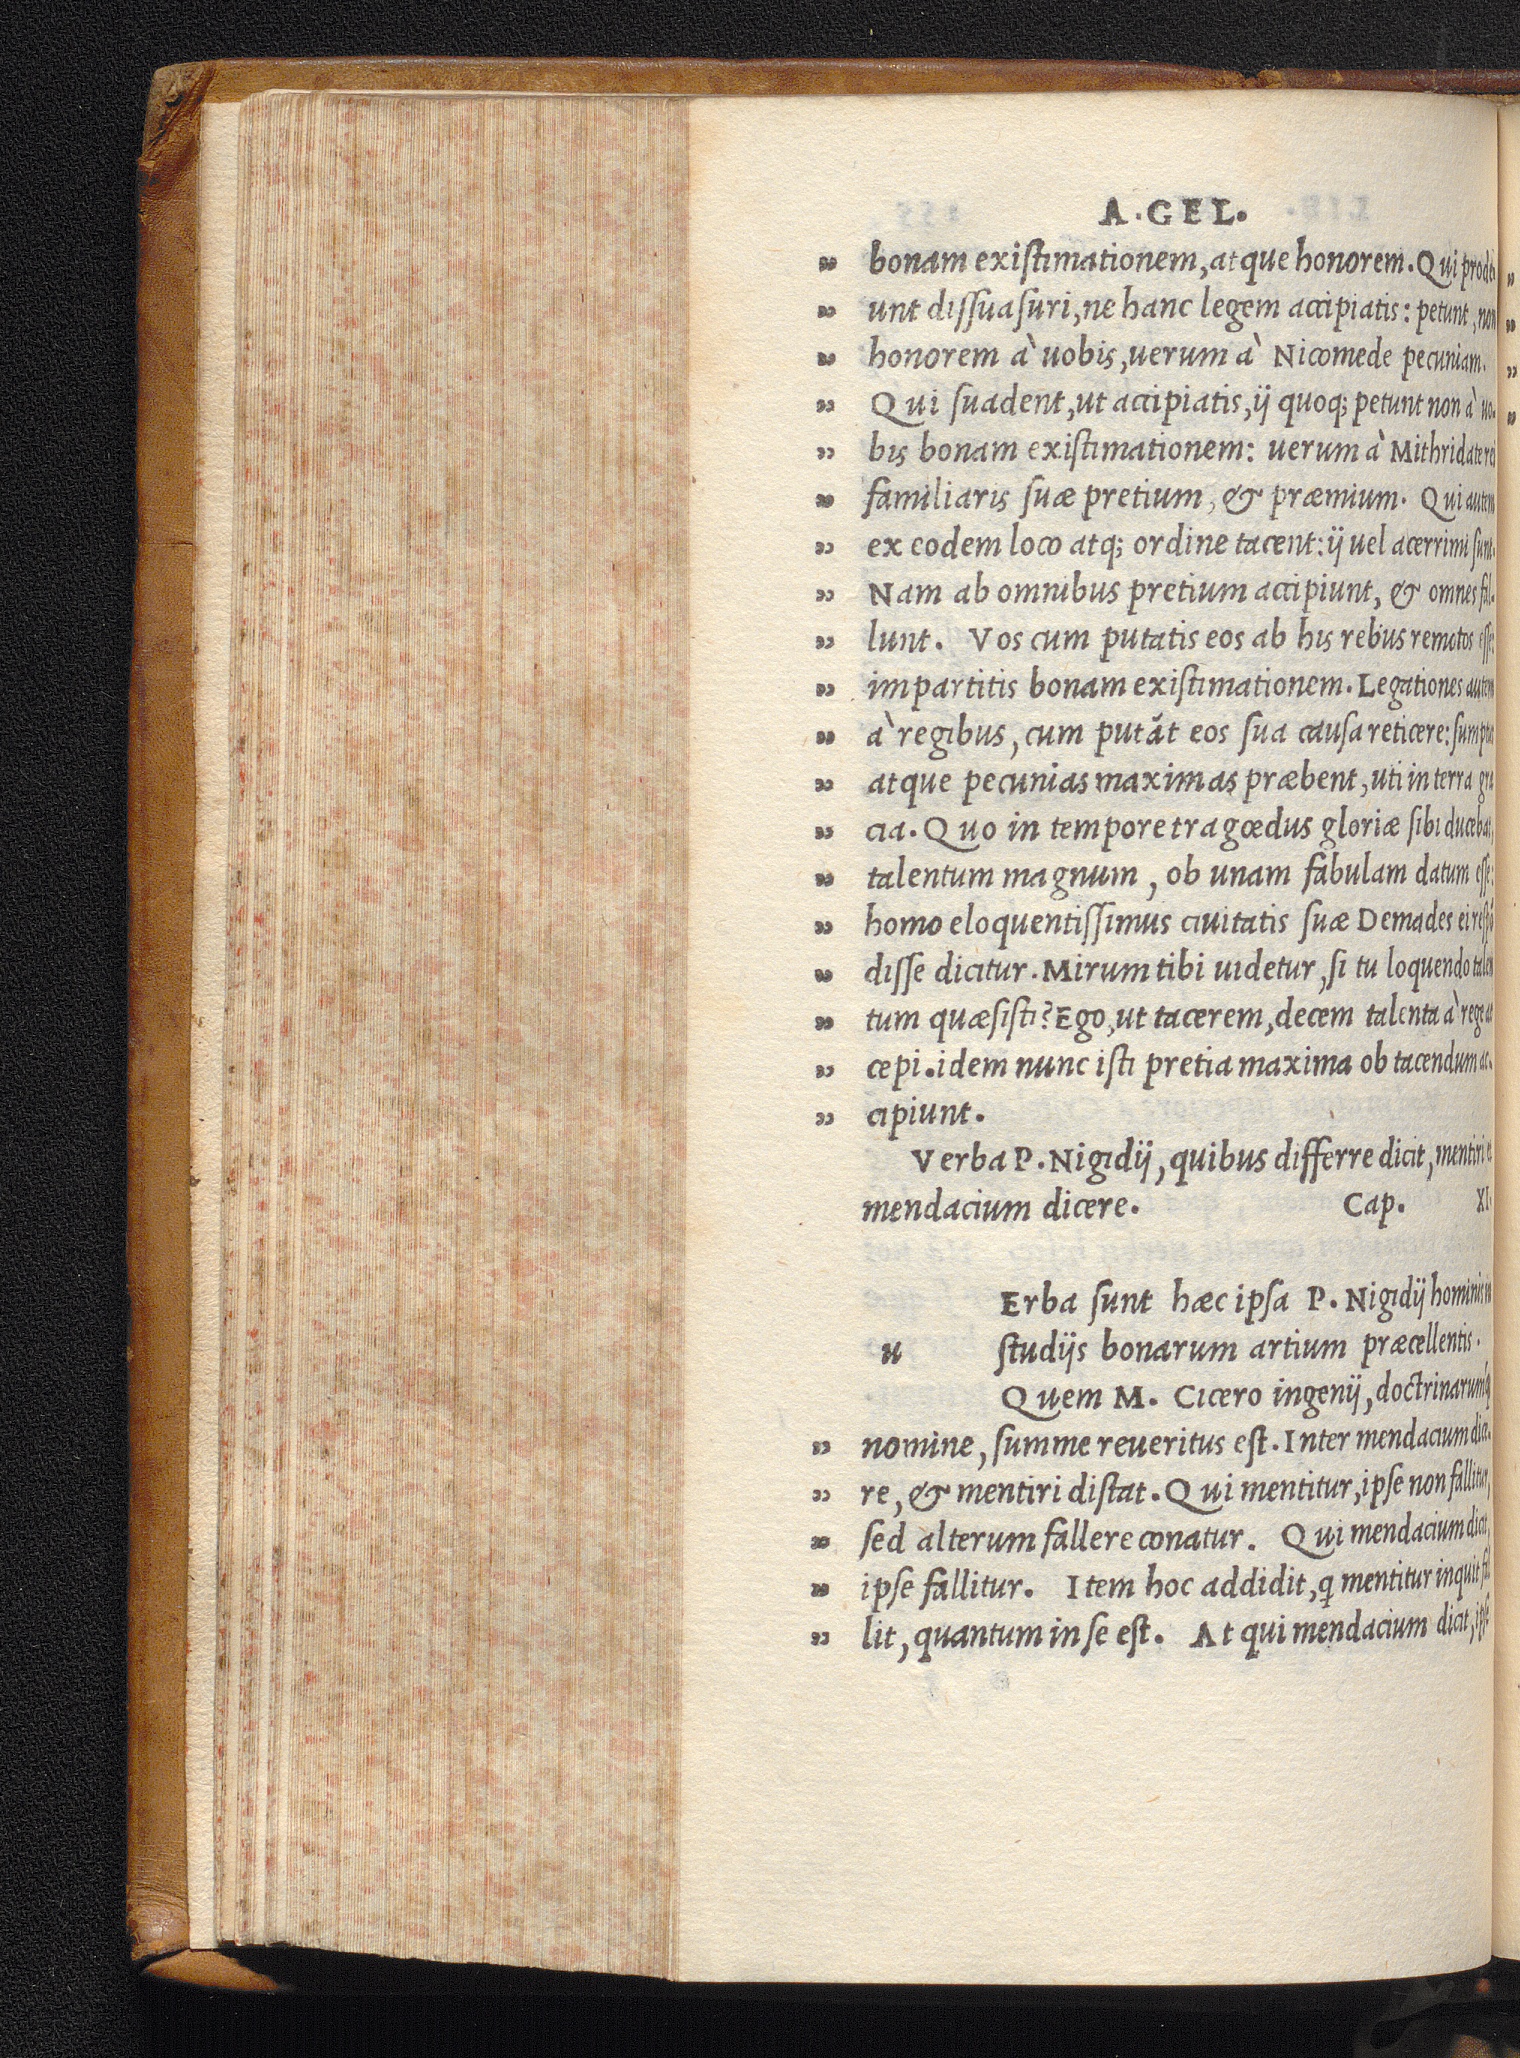 A. GEL.
„ bonam existimationem, atque honorem. Qui prode
„ unt dissuasuri, ne hanc legem accipiatis: petunt, non
„ honorem à uobis, uerum à Nicomede pecuniam.
„ Qui suadent, ut accipiatis, ij quoq; petunt non à uo-
„ bis bonam existimationem: uerum à Mithridate rei
„ familiaris suæ pretium, & præmium. Qui autem
„ ex eodem loco atq; ordine tacent: ij uel acerrimi sunt.
„ Nam ab omnibus pretium accipiunt, & omnes fal-
„ lunt. Vos cum putatis eos ab his rebus remotos esse:
„ impartitis bonam existimationem. Legationes autem
„ à regibus, cum putãt eos sua causa reticere: sumptus
„ atque pecunias maximas præbent, uti in terra græ
„ cia. Quo in tempore tragœdus gloriæ sibi ducebat,
„ talentum magnum, ob unam fabulam datum esse:
„ homo eloquentissimus ciuitatis suæ Demades ei respõ
„ disse dicitur. Mirum tibi uidetur, si tu loquendo talen
„ tum quæsisti? Ego, ut tacerem, decem talenta à rege ac
„ cepi. idem nunc isti pretia maxima ob tacendum ac-
„ cipiunt.
Verba P. Nigidij, quibus differre dicit, mentiri et
mendacium dicere. Cap. XI.
Erba sunt hæc ipsa P. Nigidij hominis in
u studijs bonarum artium præcellentis.
Quem M. Cicero ingenij, doctrinarumq;
„ nomine, summe reueritus est. Inter mendacium dice-
„ re, & mentiri distat. Qui mentitur, ipse non fallitur,
„ sed alterum fallere conatur. Qui mendacium dicit,
„ ipse fallitur. Item hoc addidit, q mentitur inquit fal
„ lit, quantum in se est. At qui mendacium dicit, ipse